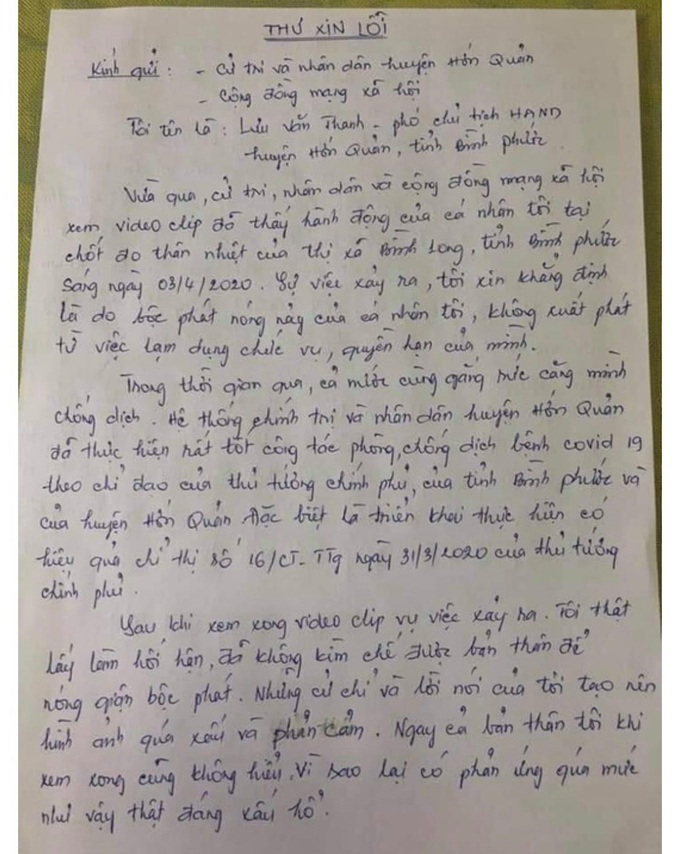 THƯ XIN LỖI
Kính gửi : - Cử tri và nhân dân huyện Hớn Quản
- Cộng đồng mạng xã hội
Tôi tên là : Lưu Văn Thanh - phó chủ tịch HĐND
huyện Hớn Quản, tỉnh Bình Phước.
Vừa qua, cử tri, nhân dân và cộng đồng mạng xã hội
xem video clip đã thấy hành động của cá nhân tôi tại
chốt đo thân nhiệt của thị xã Bình Long, tỉnh Bình Phước
sáng ngày 03/4/2020. Sự việc xảy ra, tôi xin khẳng định
là do bộc phát nóng nảy của cá nhân tôi, không xuất phát
từ việc lạm dụng chức vụ, quyền hạn của mình.
Trong thời gian qua, cả nước cùng gắng sức căng mình
chống dịch. Hệ thống chính trị và nhân dân huyện Hớn Quản
đã thực hiện rất tốt công tác phòng, chống dịch bệnh covid 19
theo chỉ đạo của thủ tướng chính phủ, của tỉnh Bình Phước và
của huyện Hớn Quản đặc biệt là triển khai thực hiện có
hiệu quả chỉ thị số 16/CT-TTg ngày 31/3/2020 của thủ tướng
chính phủ.
Sau khi xem xong video clip vụ việc xảy ra. Tôi thật
lấy làm hối hận, đã không kìm chế được bản thân để
nóng giận bộc phát. Những cử chỉ và lời nói của tôi tạo nên
hình ảnh quá xấu và phản cảm. Ngay cả bản thân tôi khi
xem xong cũng không hiểu, vì sao lại có phản ứng quá mức
như vậy thật đáng xấu hổ.